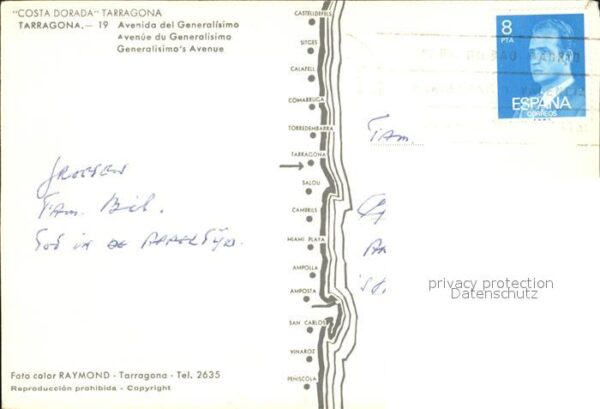 "COSTA DORADA" TARRAGONA
TARRAGONA.— 19 Avenida del Generalísimo
Avenue du Generalisimo
Generalisimo's Avenue
CASTELLDEFELS
SITGES
CALAFELL
COMARRUGA
TORREDEMBARRA
TARRAGONA
SALOU
CAMBRILS
MIAMI PLAYA
AMPOLLA
AMPOSTA
SAN CARLOS
VINAROZ
PEÑISCOLA
8
PTA
ESPAÑA
CORREOS
Fam.
Groeten
Fam. Bil.
Tot in de
privacy protection
Datenschutz
Foto color RAYMOND - Tarragona - Tel. 2635
Reproducción prohibida - Copyright